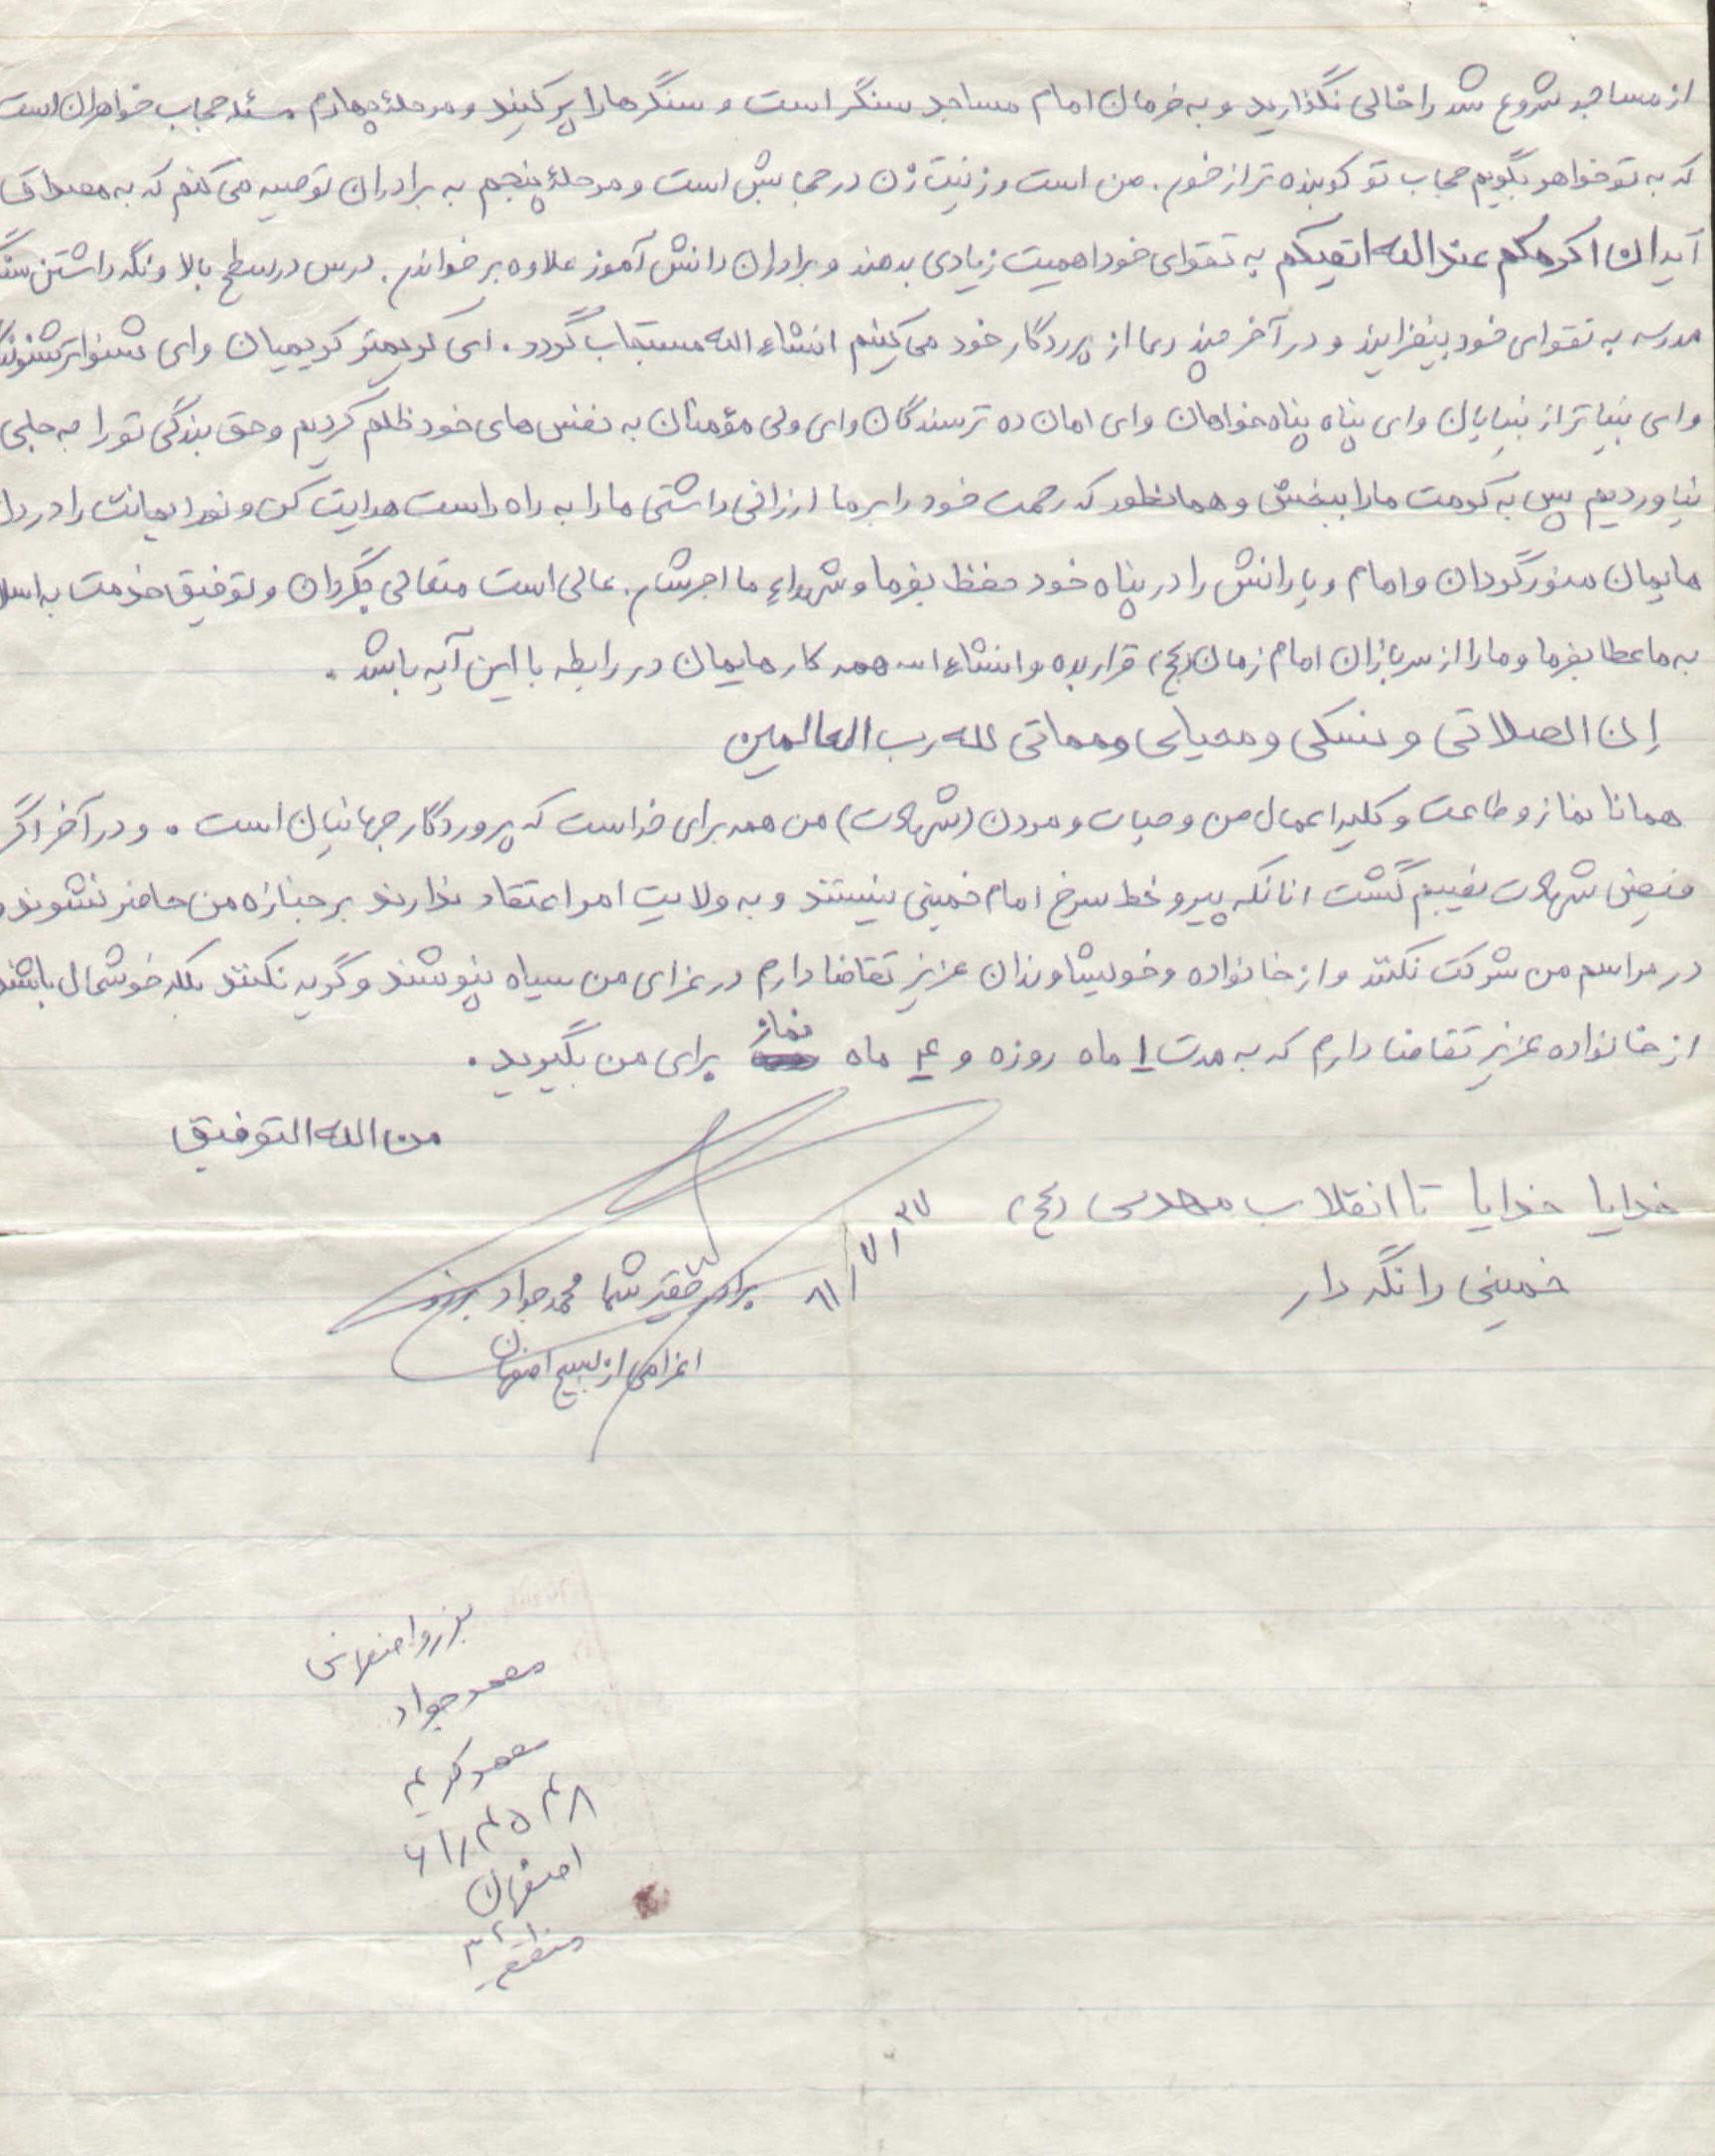 از مساجد شروع شد را خالی نگذارید و به فرمان امام مساجد سنگر است و سنگرها را پر کنید و مرحلهٔ چهارم مسئله حجاب خواهران است
که به تو خواهر بگویم حجاب تو کوبنده تر از خون من است و زینت زن در حجابش است و مرحلهٔ پنجم به برادران توصیه می کنم که به مصداق
آیه ان اکرمکم عندالله اتقیکم به تقوای خود اهمیت زیادی بدهند و برادران دانش آموز علاوه بر خواندن درس در سطح بالا و نگه داشتن سنگر
مدرسه به تقوای خود بیفزایند و در آخر چند دعا از پروردگار خود می کنیم انشاءالله مستجاب گردد. ای کریمتر کریمیان و ای شنواتر شنوندگان
و ای بیناتر از بینایان و ای پناه پناه خواهان و ای امان ده ترسندگان و ای ولی مؤمنان به نفس های خود ظلم کردیم و حق بندگی تو را به جلی
نیاوردیم پس به کرمت ما را ببخش و همانطور که رحمت خود را بر ما ارزانی داشتی ما را به راه راست هدایت کن و نور ایمانت را در دل
هایمان منور گردان و امام و یارانش را در پناه خود حفظ بفرما و شهداء ما اجرشان عالی است متعالی بگردان و توفیق خدمت به اسلام
به ما عطا بفرما و ما را از سربازان امام زمان (عج) قرار بده و انشاءاله همه کارهایمان در رابطه با این آیه باشد.
إن الصلاتی و نسکی و محیای و مماتی لله رب العالمین
همانا نماز و طاعت و کلیه اعمال من و حیات و مردن (شهادت) من همه برای خداست که پروردگار جهانیان است. و در آخر اگر
فیض شهادت نصیبم گشت انانکه پیرو خط سرخ امام خمینی نیستند و به ولایت او اعتقاد ندارند بر جنازه من حاضر نشوند و
در مراسم من شرکت نکنند و از خانواده و خویشاوندان عزیز تقاضا دارم در عزای من سیاه نپوشند و گریه نکنند بلکه خوشحال باشند
از خانواده عزیز تقاضا دارم که به مدت ۱ ماه روزه و ۴ ماه نماز برای من بگیرید.
من الله التوفیق
خدایا خدایا تا انقلاب مهدی (عج)
خمینی را نگه دار
برادر حقیر شما محمدجواد برزو
اعزامی از بسیج اصفهان
برزو اصفهانی
محمدجواد
محمدکریم
اصفهان
منطقه ۲